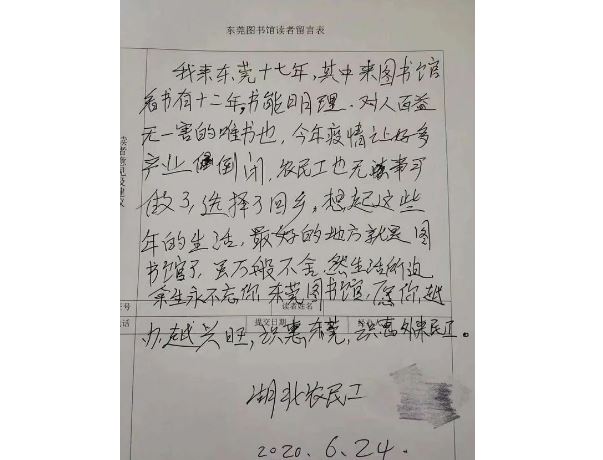 东莞图书馆读者留言表
我来东莞十七年,其中来图书馆
看书有十二年,书能明理.对人百益
无一害的唯书也,今年疫情让好多
产业倒闭,农民工也无事可
做了,选择了回乡,想起这些
年的生活,最好的地方就是图
书馆了,虽万般不舍,然生活所迫
余生永不忘你,东莞图书馆,愿你越
办越兴旺,识惠东莞,识惠外来民工。
读者姓名
提交日期
湖北农民工
2020.6.24.